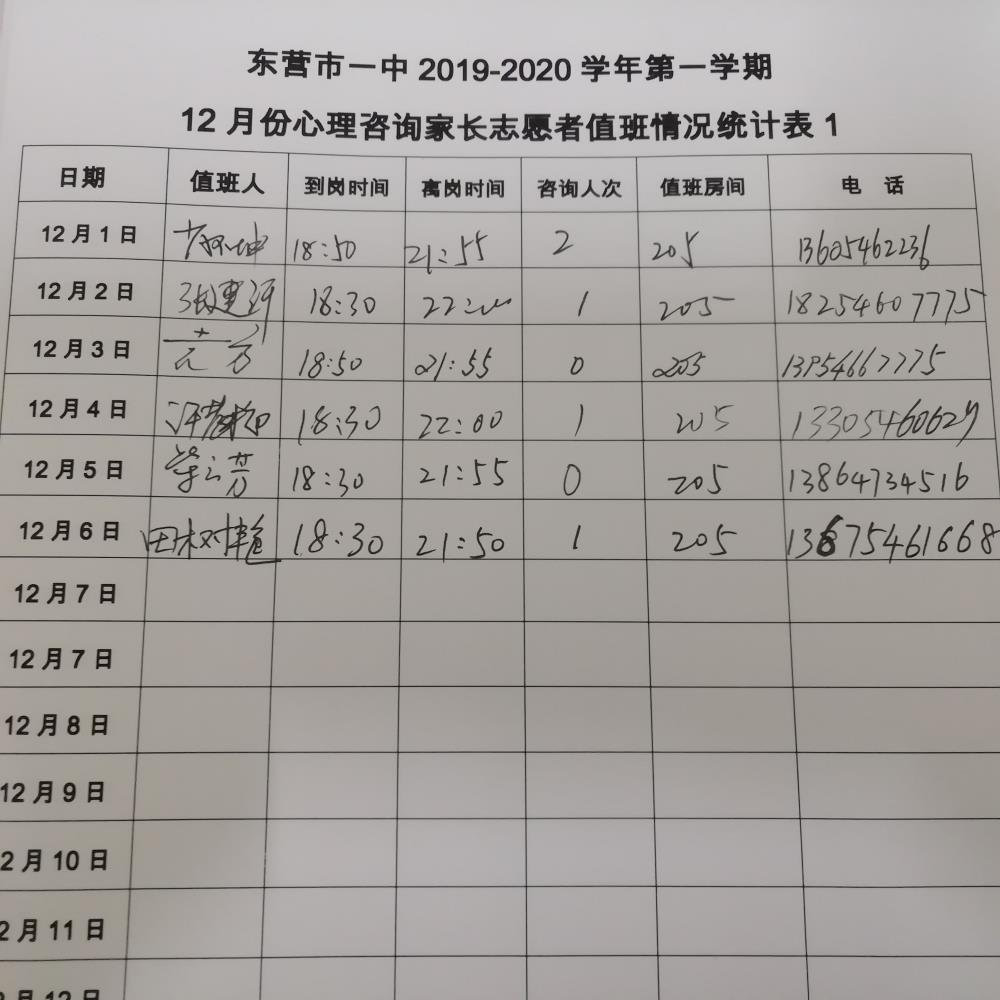 东营市一中 2019-2020 学年第一学期
12 月份心理咨询家长志愿者值班情况统计表 1
日期 值班人 到岗时间 离岗时间 咨询人次 值班房间 电 话
12 月 1 日 18:50 21:55 2 205 13605462236
12 月 2 日 18:30 22:00 1 205 18254607775
12 月 3 日 18:50 21:55 0 205
12 月 4 日 18:30 22:00 1 205 13305460629
12 月 5 日 18:30 21:55 0 205 13864734516
12 月 6 日 田树艳 18:30 21:50 1 205 13675461668
12 月 7 日
12 月 7 日
12 月 8 日
12 月 9 日
2 月 10 日
2 月 11 日
2 月 12 日